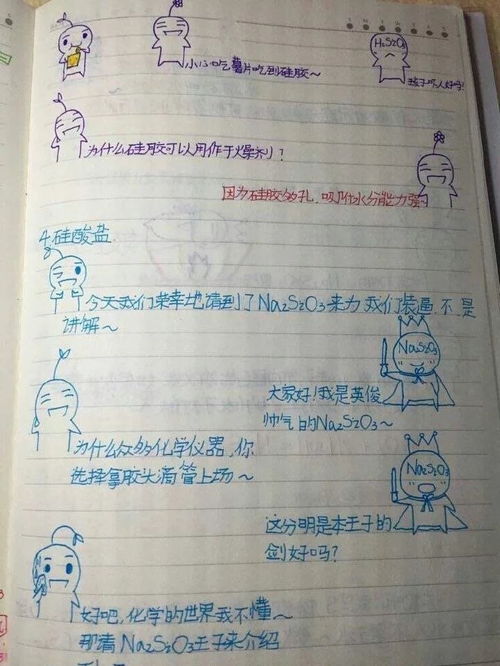 H₂S₂O₃
小心吃薯片吃到硅胶～
孩子吓人好吗!
为什么硅胶可以用作干燥剂?
因为硅胶多孔,吸附水分能力强
4.硅酸盐
今天我们荣幸地请到了Na₂S₂O₃来为我们装逼,不,是
讲解～
Na₂S₂O₃
大家好!我是英俊
帅气的Na₂S₂O₃～
为什么众多化学仪器,你
选择拿胶头滴管上场～
Na₂S₂O₃
这分明是本王子的
剑好吗?
好吧,化学的世界我不懂～
那请Na₂S₂O₃王子来介绍